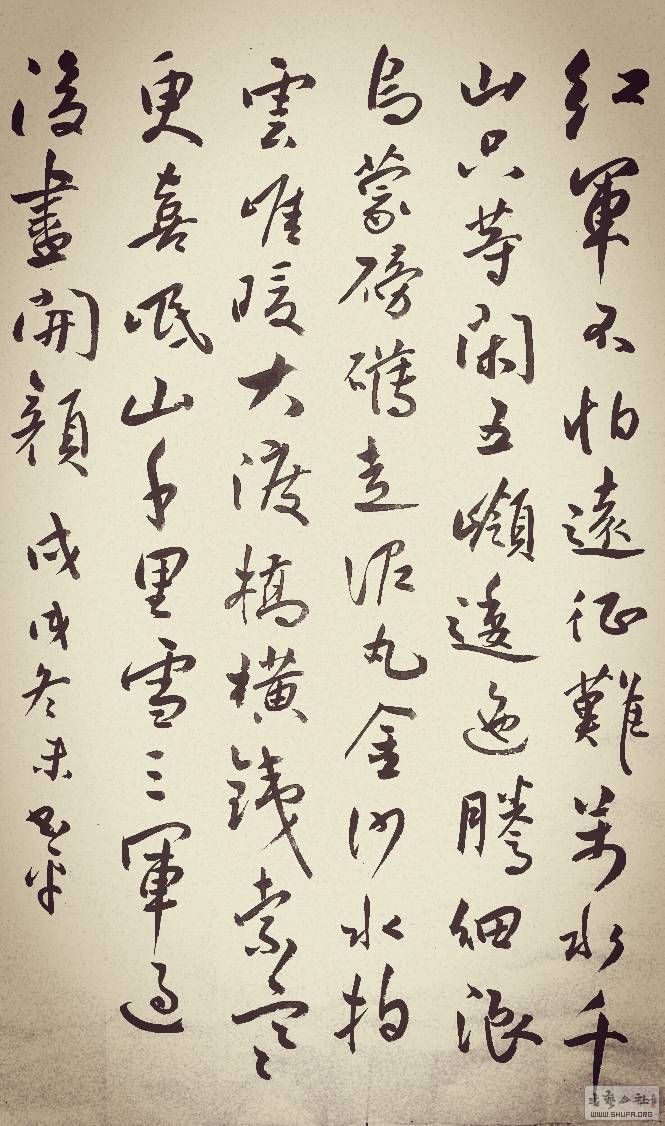 紅軍不怕遠征難萬水千
山只等閑五嶺逶迤騰細浪
烏蒙磅礴走泥丸金沙水拍
雲崖暖大渡橋橫鐵索寒
更喜岷山千里雪三軍過
後盡開顏 戊戌冬末
书艺公社
WWW.SHUFA.ORG